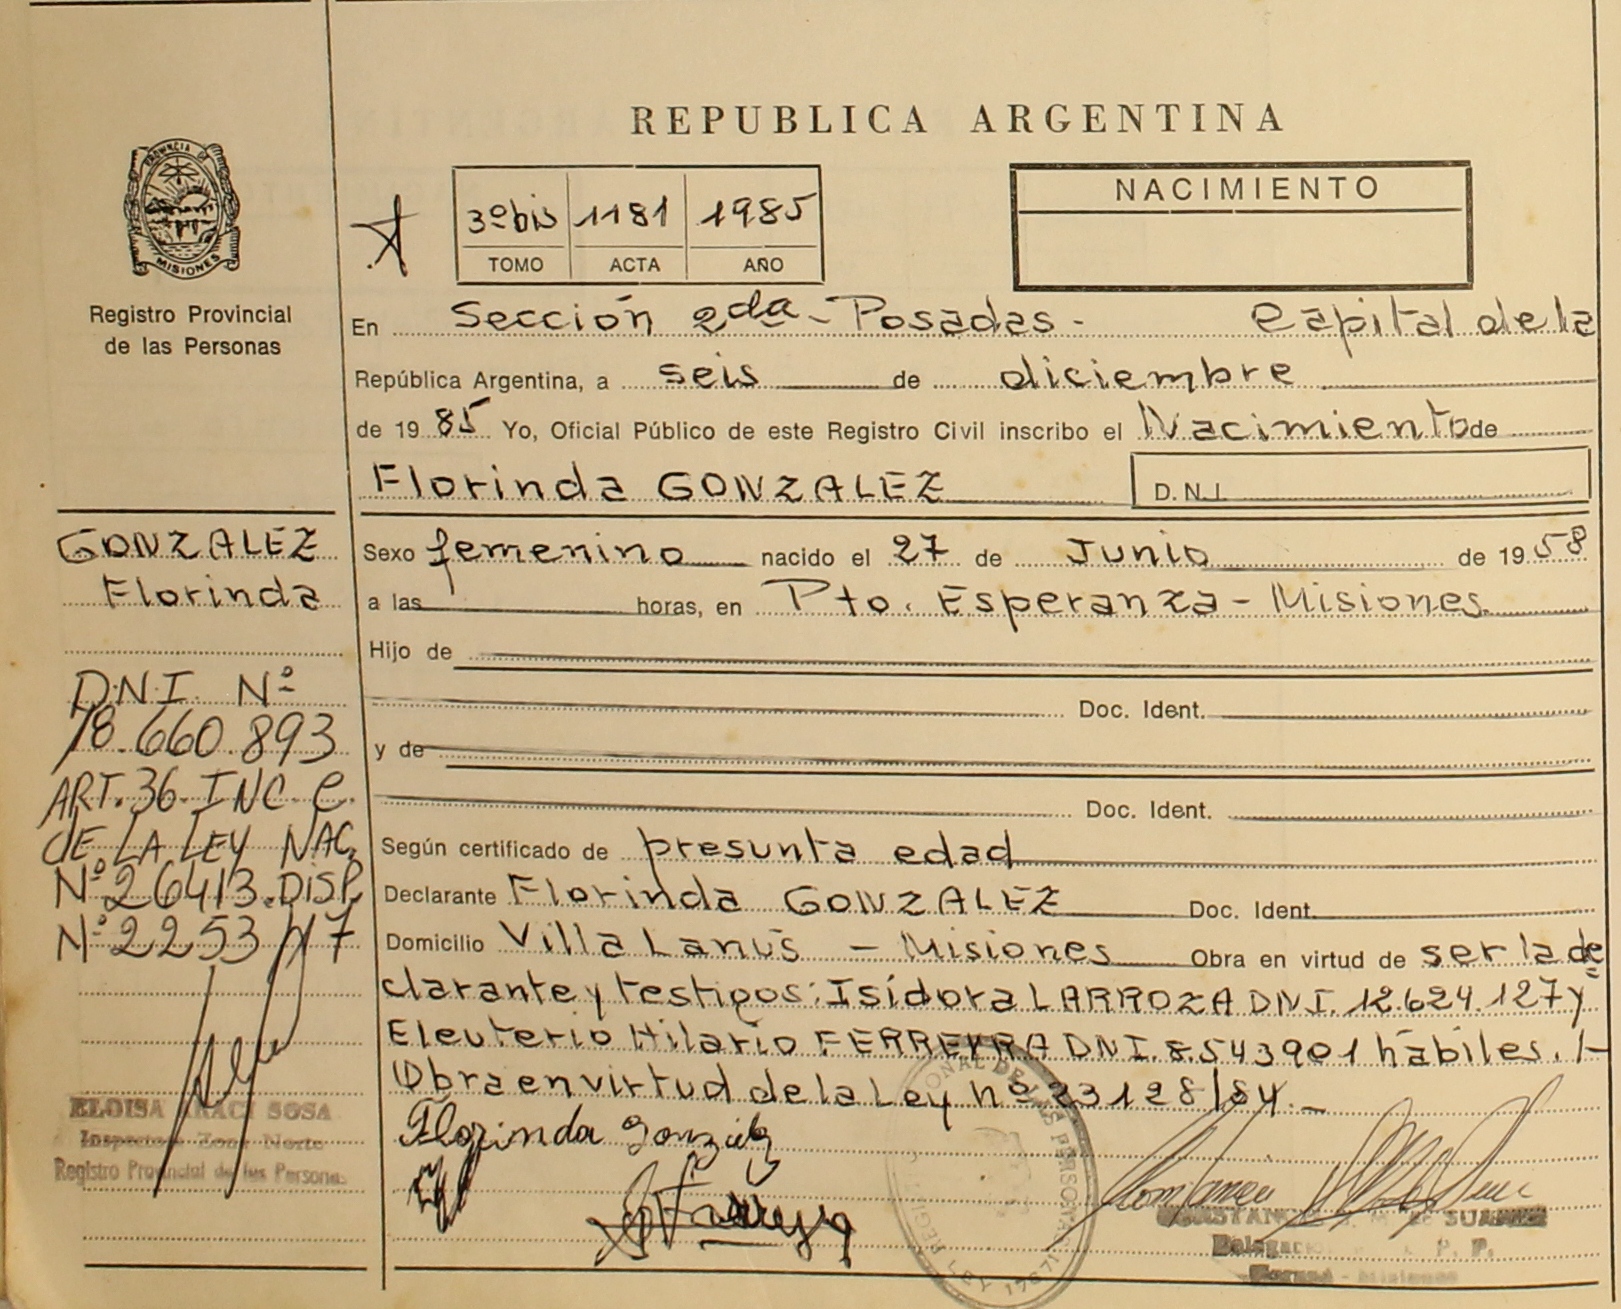 REPUBLICA ARGENTINA
PROVINCIA DE
MISIONES
Registro Provincial
de las Personas
3º bis 1181 1985
TOMO ACTA AÑO
NACIMIENTO
En Sección 2da - Posadas - Capital de la
República Argentina, a seis de diciembre
de 1985 Yo, Oficial Público de este Registro Civil inscribo el Nacimiento de
Florinda GONZALEZ D.N.I.
Sexo femenino nacido el 27 de Junio de 1958
a las horas, en Pto. Esperanza - Misiones
Hijo de
Doc. Ident.
y de
Doc. Ident.
Según certificado de presunta edad
Declarante Florinda GONZALEZ Doc. Ident.
Domicilio Villa Lanús - Misiones Obra en virtud de ser la de
clarante y testigos: Isidora LARROZA DNI. 12.624.127 y
Eleuterio Hilario FERREYRA DNI. 8543901 hábiles. /-
Obra en virtud de la Ley nº 23128/84.-
Florinda Gonzalez
GONZALEZ
Florinda
D.N.I. Nº
18.660.893
ART. 36 INC C.
DE LA LEY NAC.
Nº 26413. DISP.
Nº 2253/17
ELOISA ARACI SOSA
Inspectora Zona Norte
Registro Provincial de las Personas
LEY 17671
SUAREZ